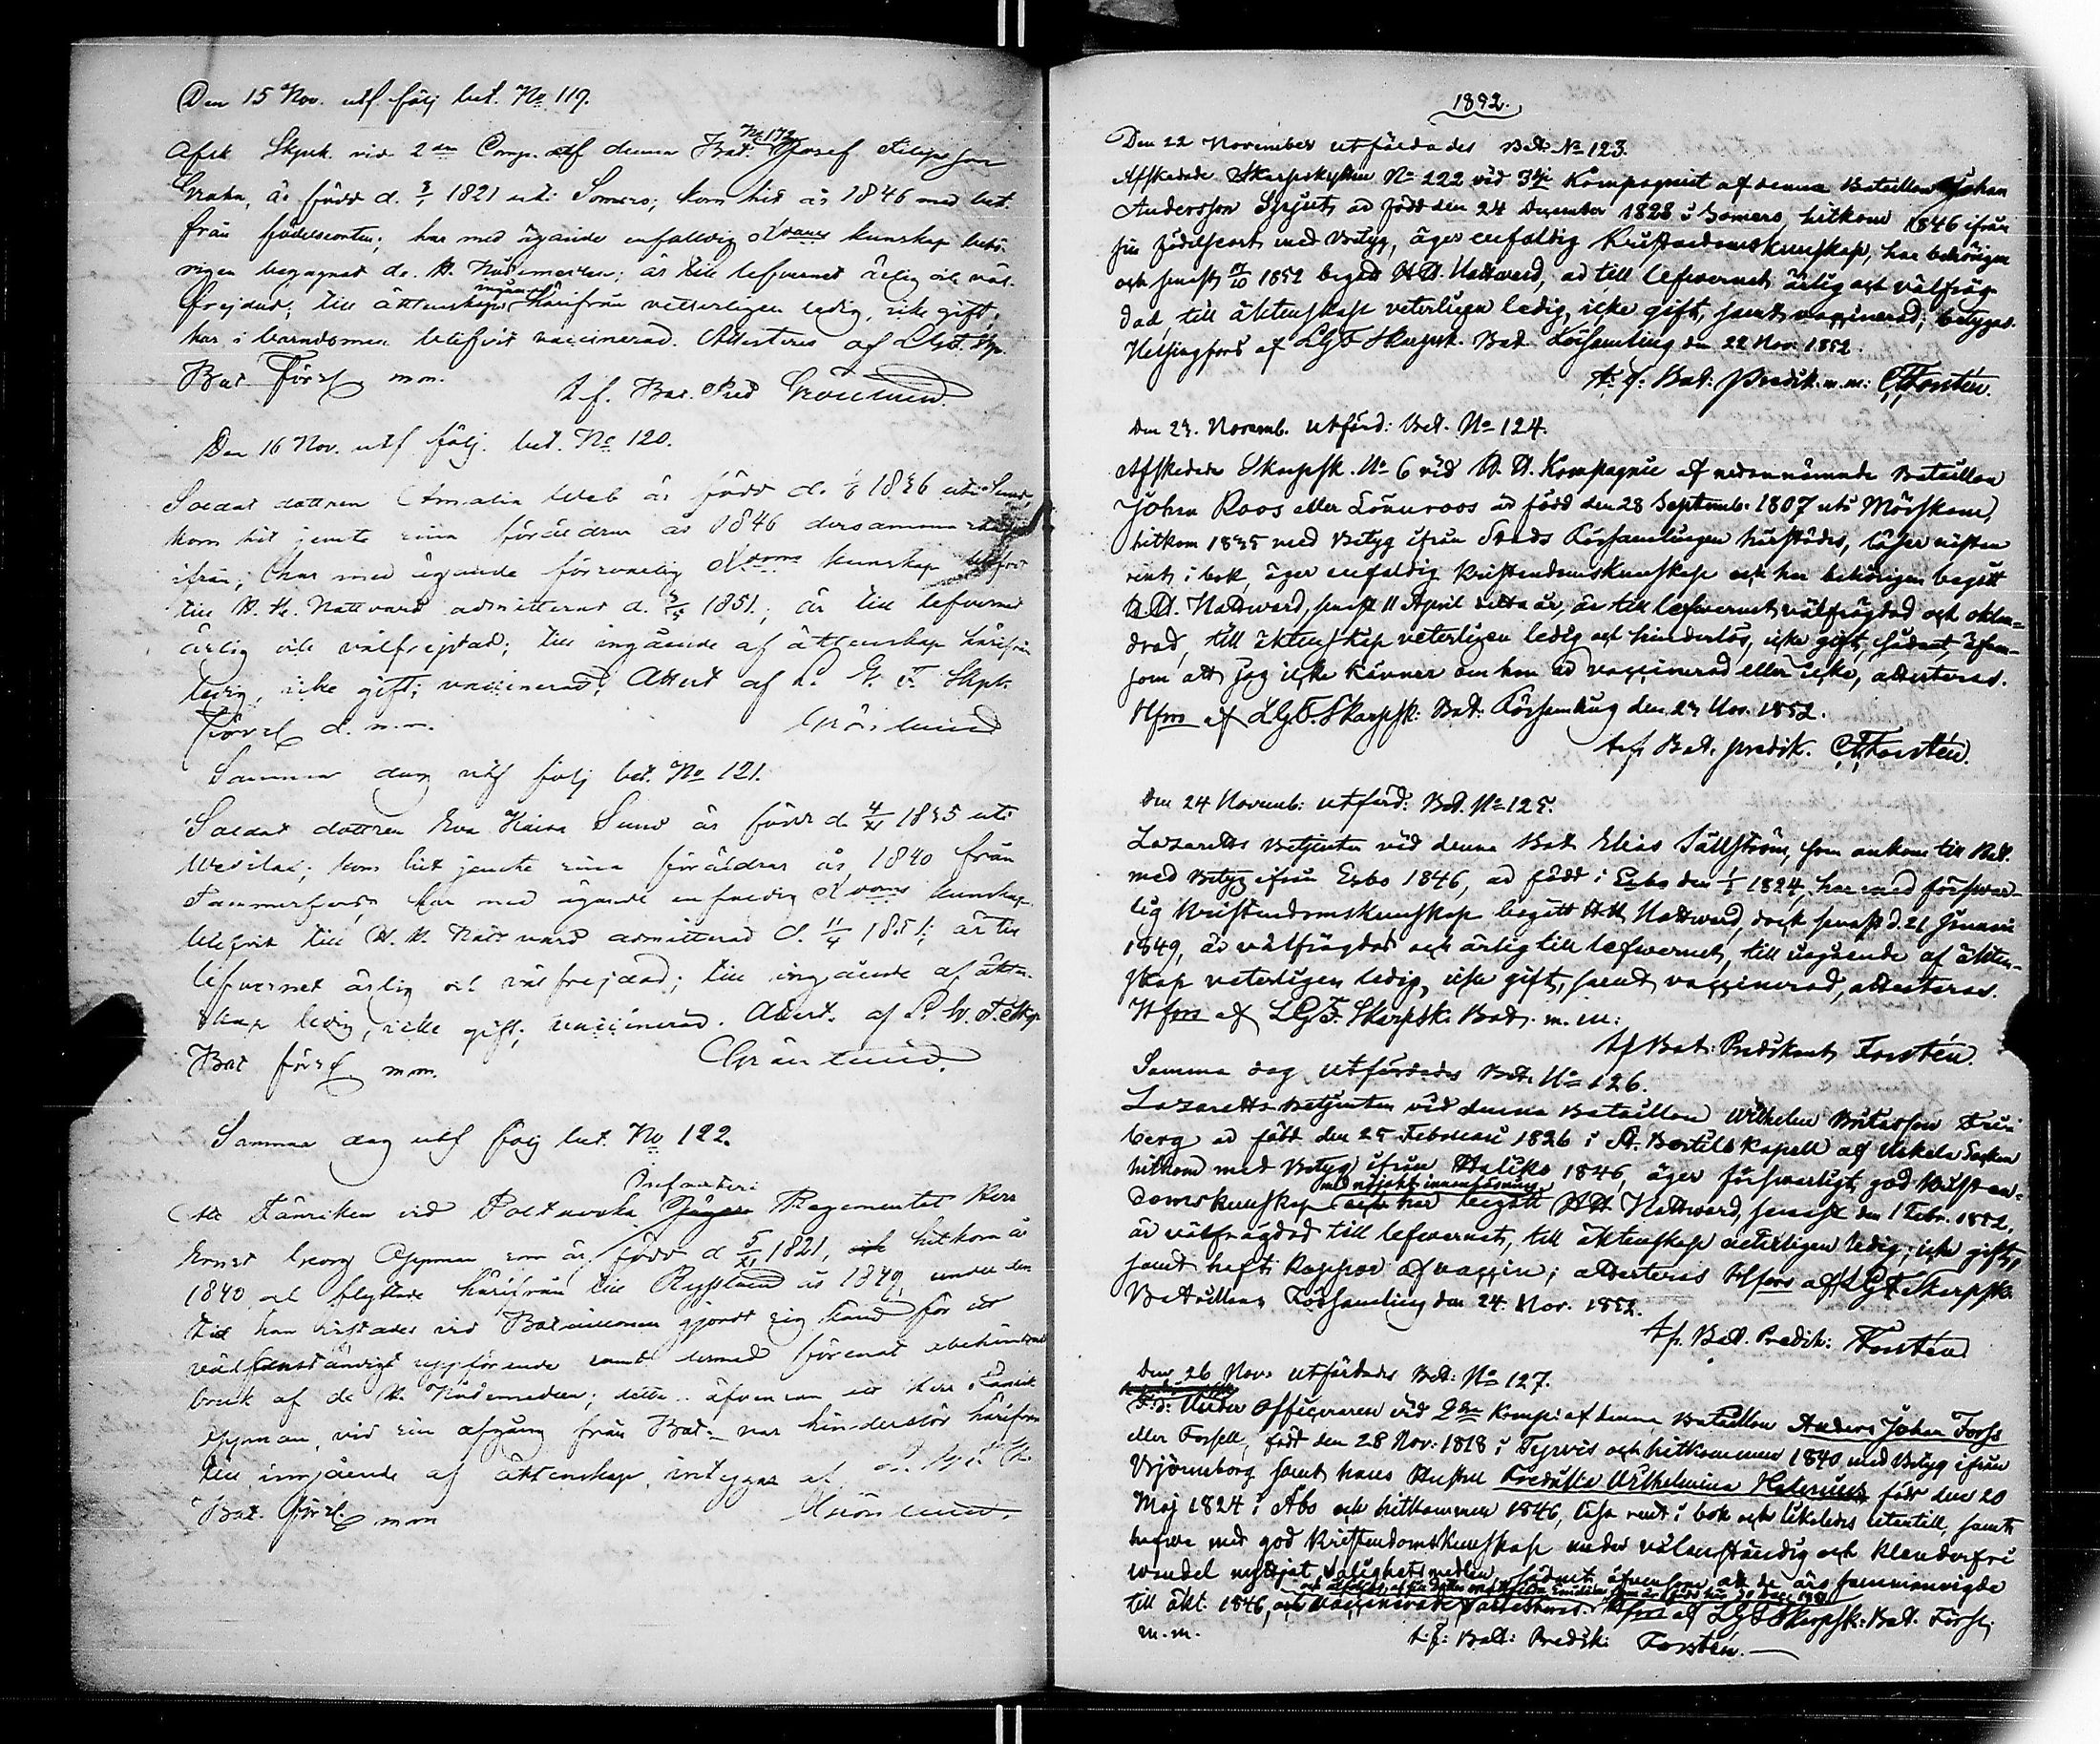 Den 15 Nov. utf. följ bet. No 119.
Afsk Skpsk. vid 2dra Comp. af denna Bat. No 172 Josef Filipsson
är född d. 1821 uti Somero; kom hit år 1846 med bet.
från födelseorten; har med ägande enfaldig Xdoms kunskap behö-
rigen begagnat de H. Nådemedlen; är till lefvernet ärlig och väl-
frejdad; till äktenskaps ingående härifrån vetterligen ledig, icke gift;
har i barndomen blifvit vaccinerad. Attesteras af LGF. Skp.
Bat Förs mm.
A. f. Bat. Pred Grönlund.
Den 16 Nov. utf. följ. bet. No 120.
Soldat dottren Amalia är född d. 1836 uti
kom hit jemte sina föräldrar år 1846 dersammma
ifrån; har med ägande försvarlig Xdoms kunskap blifvit
till H. H. Nattvard admitterad d. 1851; är till lefvernet
ärlig och välfrejdad; till ingående af äktenskap härifrån
ledig, icke gift; vaccinerad. Attest af L. G. F. Skpk.
Förs d. m.m.
Grönlund
Samma dag utf följ bet. No 121.
Soldat dottren Eva Kaisa Sund är född d. 4/XI 1835 uti
Wesilax; kom hit jemte sina föräldrar år 1840 från
Tammerfors; har med ägande enfaldig Xdoms kunskap
blefvit till H. H. Nattvard admitterad d. 11/4 1851; är till
lefvernet ärlig och välfrejdad; till ingående af äkten-
skap ledig, icke gift; vaccinerad. Attest. af L. G. F. Skp
Bat förs. mm.
Grönlund.
Samma dag utf följ bet. No 122.
Att Fänriken vid Poltavska Infanteri Regementet Herr
Ernst Georg Oppman som är född d 5/XI 1821, hitkom år
1840 och flyttade härifrån till Ryssland år 1849, under den
tid han vistades vid Bataillonen gjordt sig känd för ett
välanständigt uppförande samt dermed förenat obehindradt
bruk af de H. Nådemedlen; detta äfvensom att Herr Fänrik
Oppman, vid sin afgång från Bat. var hinderslös härifrån
till ingående af äktenskap, intygas af L. G. F. Sk.
Bat. Förs. mm
Grönlund.
1852.
Den 22 November utfärdades Bet. No 123.
Afskedade Skarpskytten No 222 vid 3dje Kompagniet af denna Bataillon Johan
Andersson Spjut, är född den 24 December 1828 i Somero, hitkom 1846 ifrån
sin födelseort med Betyg, äger enfaldig Kristendomskunskap, har behörigen
och senast 1852 begått H. H. Nattward, är till lefwernet ärlig och välfräg-
dad, till äktenskap veterligen ledig, icke gift, samt vaccinerad; betygas.
Helsingfors af LGF Skarpsk. Bat. Församling den 22 Nov. 1852.
A. f. Bat: Predik. m.m: Forstén.
Den 23. Novemb. utfärd: Bet. No 124.
Afskedade Skarpsk. No 6 vid Kompagnie af nedannämnde Bataillon
Johan Roos eller Lönnroos är född den 28 Septemb. 1807 uti Mörskom,
hitkom 1835 med Betyg ifrån Stads Församlingen härstädes, läser nästan
rent i bok, äger enfaldig Kristendomskunskap och har behörigen begått
H. H. Nattward, senast 11 April detta år, är till lefwernet välfrägdad och oklan-
drad, till äktenskap veterligen ledig och hinderlös, icke gift, sådant, äfven-
som att jag icke känner om han är vaccinerad eller icke, attesteras.
Hfors af LGF. Skarpsk: Bat: Församling den 23 Nov. 1852.
A.f. Bat. predik. Forstén.
Den 24 Novemb: utfärd: Bet. No 125.
Lazaretts betjenten vid denna Bat Elias Sällström, som ankom till Bat.
med Betyg ifrån Esbo 1846, är född i Esbo den 1824, har med förswar-
lig Kristendomskunskap begått HH Nattward, dock senast d. 21 Januari
1849, är välfrägdad och ärlig till lefwernet, till ingående af äkten-
skap veterligen ledig, icke gift, samt vaccinerad, attesteras.
Hfors af LGF. Skarpsk. Bat. m. m:
Af Bat: Predikant Forstén.
Samma dag utfärdades Bet. No 126.
Lazaretts-betjenten vid denna Bataillon Wilhelm Fri-
berg är född den 25 Februari 1826 i St. Bertils Kapell af Uskela Socken
hitkom med Betyg ifrån Haliko 1846, äger förswarligt god Kristen-
domskunskap med nöjaktig innanläsning har begått HH Nattward, senast den 1 Febr. 1852.
är välfrägdad till lefwernet, till äktenskap veterligen ledig, icke gift,
samt haft koppor af vaccin; attesteras Hfors af LGF Skarpsk.
Bataillons Församling den 24. Nov. 1852.
A.f. Bat. Predik: Forstén
Den 26 Nov. utfärdades Bet: No 127.
F.d. Under Officeraren vid 2dra Komp: af denna Bataillon Anders Johan Forss
eller Forsell, född den 28 Nov: 1818 i Tyrvis och hitkommen 1840 med Betyg ifrån
Björneborg samt hans Hustru Fredrika Wilhelmina född den 20
Maj 1824 i Åbo och hitkommen 1846, läsa rent i bok och likaledes utantill, samt
hafwa med god Kristendomskunskap under välanständig och klanderfri
wandel nyttjat Salighetsmedlen, sådant äfvensom att de äro sammanvigde
till äkt. 1846, vaccinerade, attesteras. Hfors af LGF Skarpsk: Bat. Förs.
m. m.
A.f: Bat: Predik: Forstén.